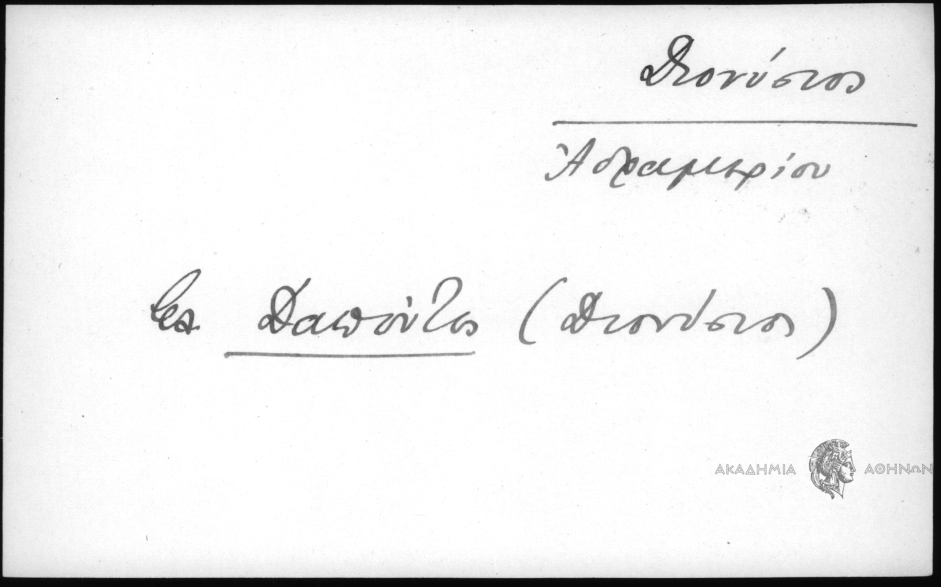 Διονύσιος
Ἀδραμερίου
βλ. Δαπόντες (Διονύσιος)
ΑΚΑΔΗΜΙΑ ΑΘΗΝΩΝ